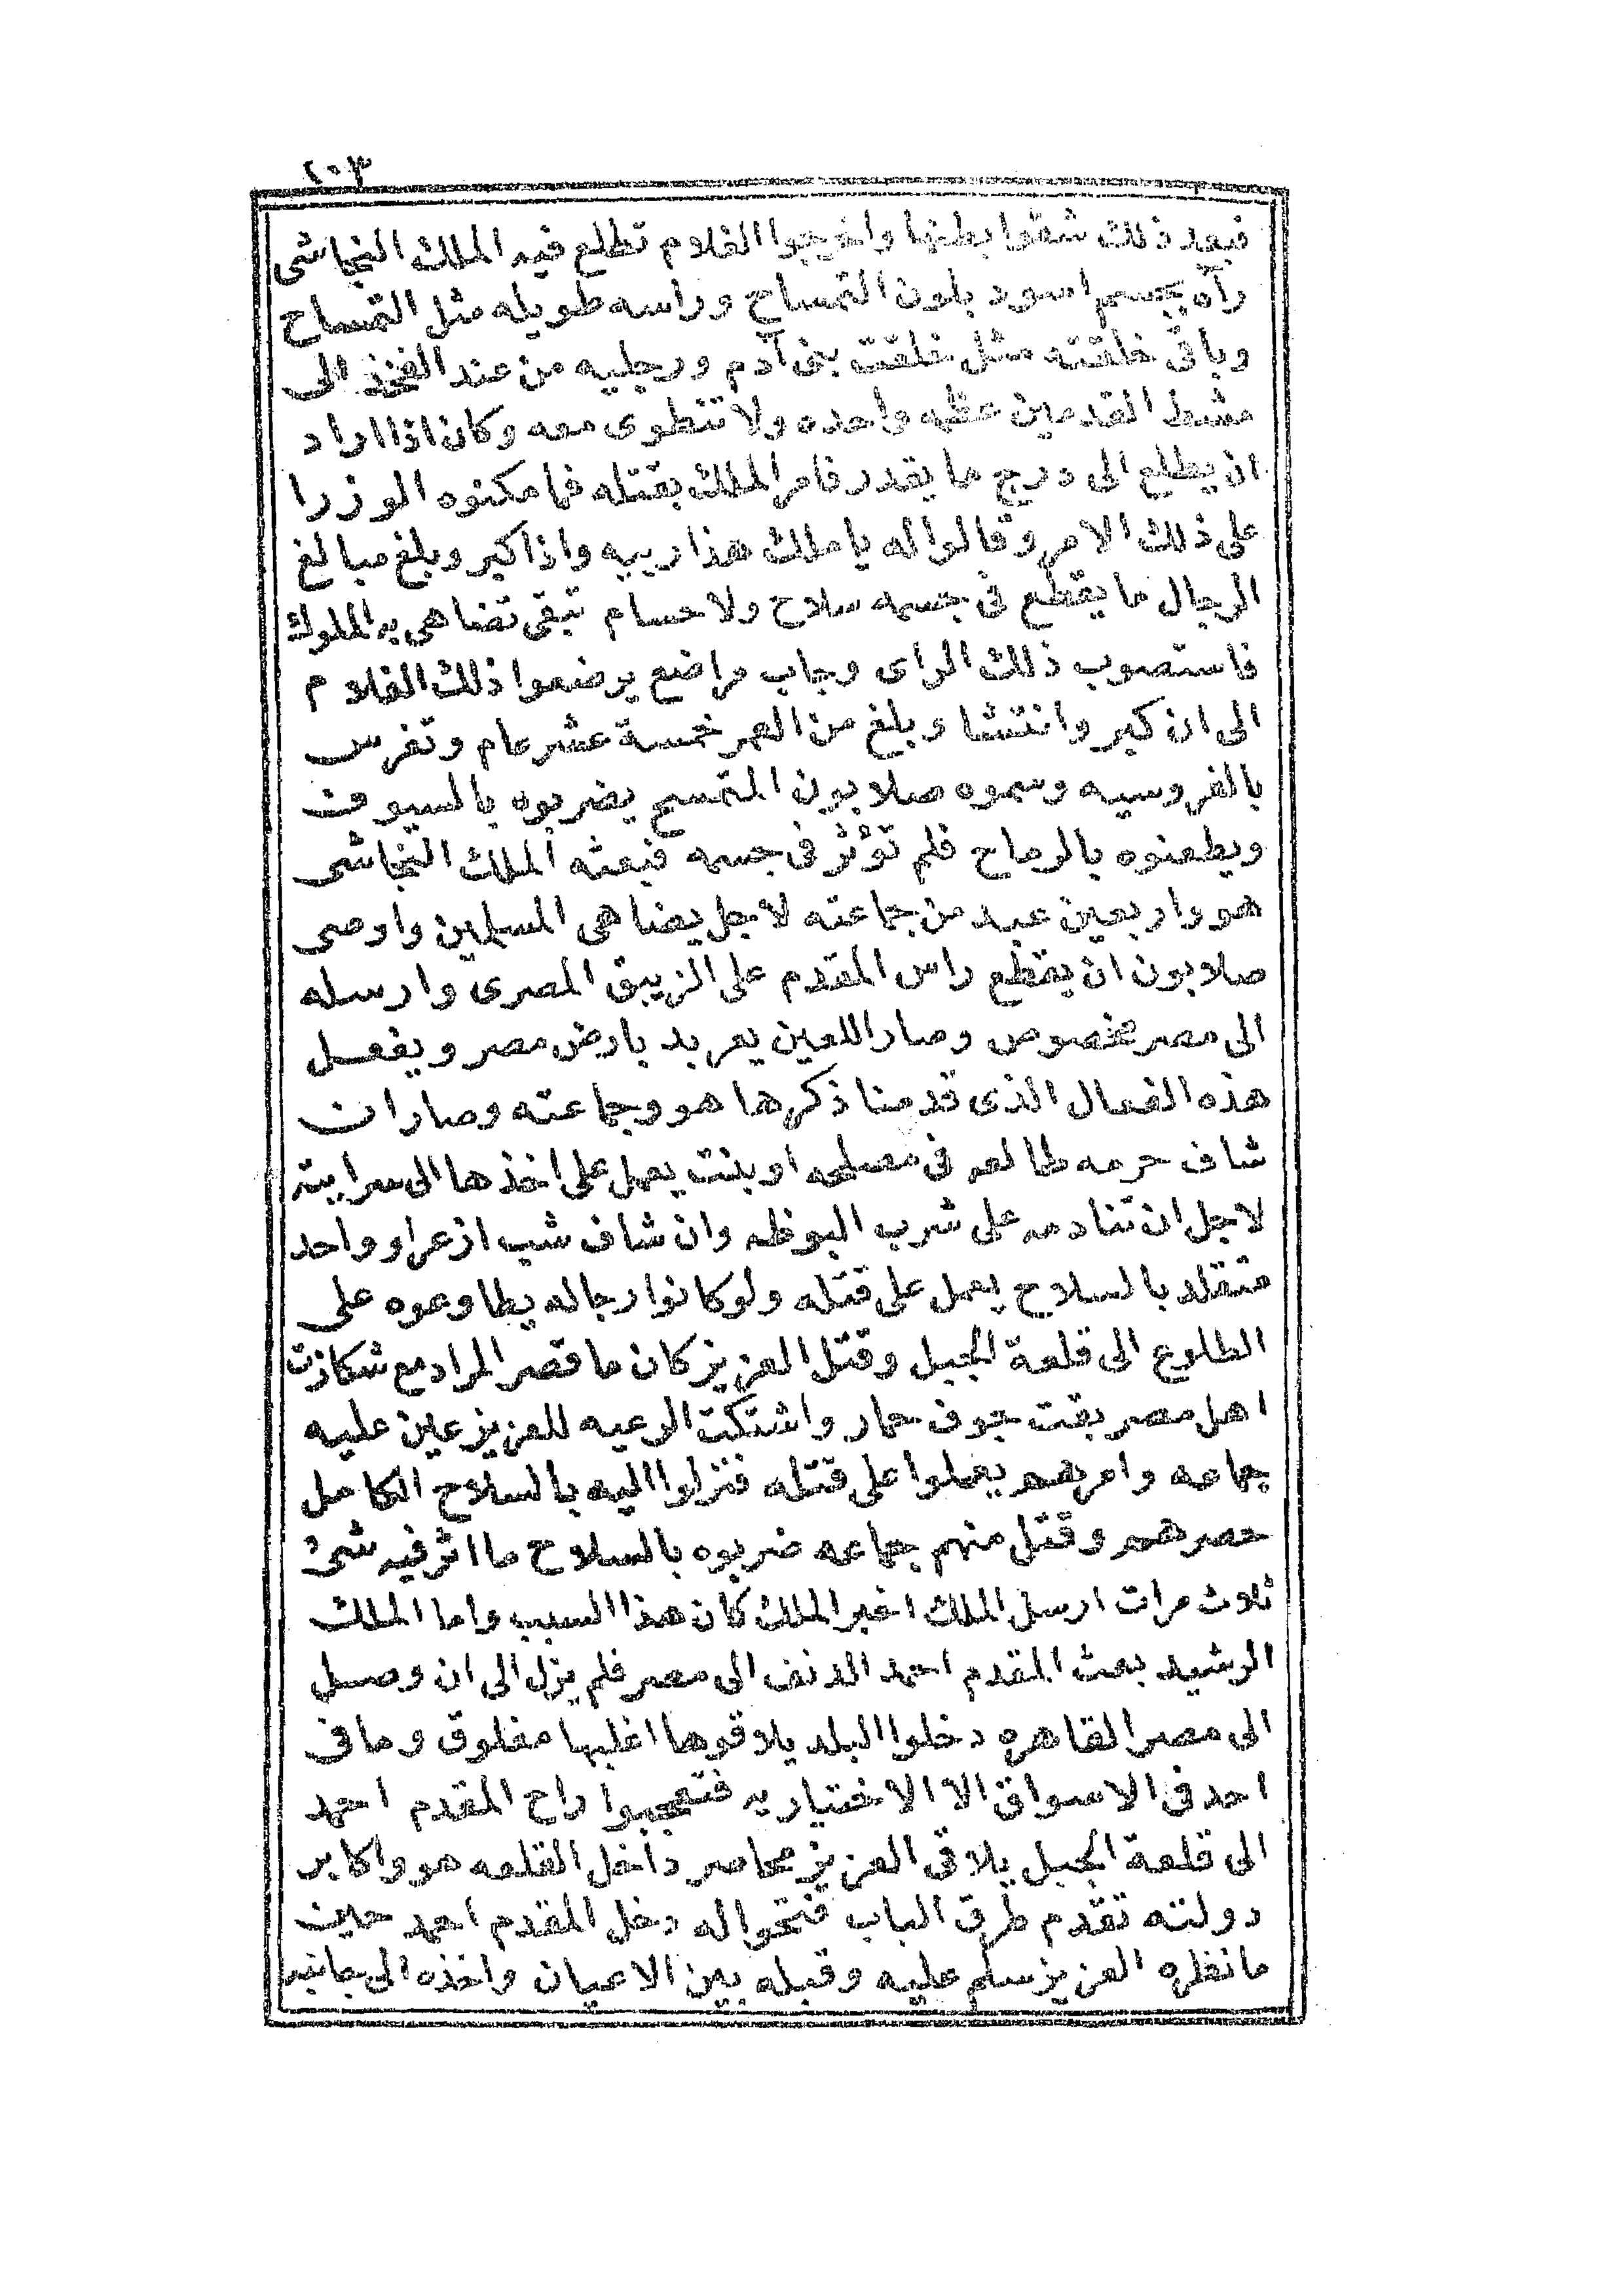 ٢٠٣
فبعد ذلك شقوا بطنها واخرجوا الغلام تطلع فيه الملك النجاشى
رآه بجسم اسود بلون التمساح وراسه طويله مثل التمساح
وباقى خلقته مثل خلقت بنى آدم ورجليه من عند الفخذ الى
مشط القدمين عظمه واحده ولا تنطوى معه وكان اذا اراد
ان يطلع الى درج ما يقدر فامر الملك بقتله فما مكنوه الوزرا
على ذلك الامر وقالوا له يا ملك هذا ربيه واذا كبر وبلغ مبالغ
الرجال ما يقطع فى جسمه سلاح ولا حسام تبقى تضاهى به الملوك
فاستصوب ذلك الراى وجاب مراضع يرضعوا ذلك الغلام
الى ان كبر وانتشا وبلغ من العمر خمسة عشر عام وتفرس
بالفروسيه وسموه صلابون التمسيح يضربوه بالسيوف
ويطعنوه بالرماح فلم تؤثر فى جسمه فبعثه الملك النجاشى
هو واربعين عبد من جماعته لاجل يضاهى المسلمين واوصى
صلابون ان يقطع راس المقدم على الزيبق المصرى وارسله
الى مصر مخصوص وصار اللعين يعربد بارض مصر ويفعل
هذه الفعال الذى قدمنا ذكرها هو وجماعته وصار ان
شاف حرمه طالعه فى مصلحه او بنت يعمل على اخذها الى سرايته
لاجل ان تنادمه على شرب البوظه وان شاف شب ازعر او واحد
متقلد بالسلاح يعمل على قتله ولو كانوا رجاله يطاوعوه على
الطلوع الى قلعة الجبل وقتل العزيز كان ما قصر المراد مع شكازت
اهل مصر بقت جوف حمار واشتكت الرعيه للعزيز عين عليه
جماعه وامرهم يعملوا على قتله فنزلوا اليه بالسلاح الكامل
حصرهم وقتل منهم جماعه ضربوه بالسلاح ما اثر فيه شئ
ثلاث مرات ارسل الملك اخبر الملك كان هذا السبب واما الملك
الرشيد بعث المقدم احمد الدنف الى مصر فلم يزل الى ان وصل
الى مصر القاهره دخلوا البلد يلاقوها اغلبها مغلوق وما فى
احد فى الاسواق الا الاختياريه فتعجبوا راح المقدم احمد
الى قلعة الجبل يلاقى العزيز محاصر داخل القلعه هو واكابر
دولته تقدم طرق الباب فتحوا له دخل المقدم احمد حين
ما نظره العزيز سلم عليه وقبله بين الاعيان واخذه الى جانبه